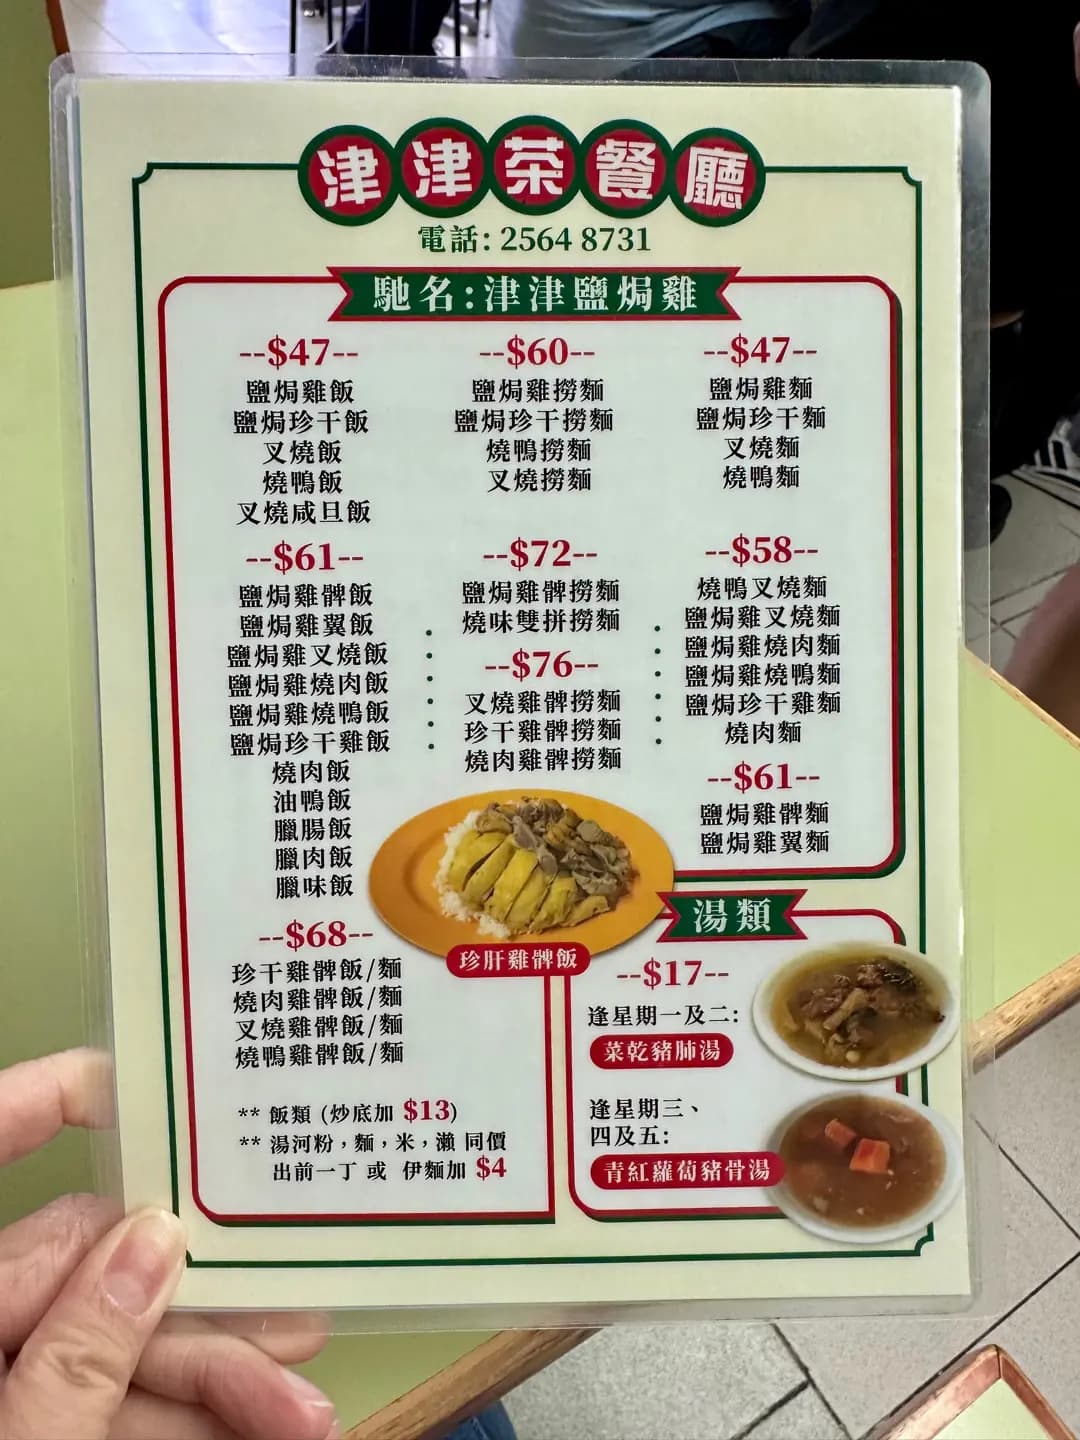 津津茶餐廳
電話: 2564 8731
馳名:津津鹽焗雞
--$47--
鹽焗雞飯
鹽焗珍干飯
叉燒飯
燒鴨飯
叉燒咸旦飯
--$61--
鹽焗雞髀飯
鹽焗雞翼飯
鹽焗雞叉燒飯
鹽焗雞燒肉飯
鹽焗雞燒鴨飯
鹽焗珍干雞飯
燒肉飯
油鴨飯
臘腸飯
臘肉飯
臘味飯
--$68--
珍干雞髀飯/麵
燒肉雞髀飯/麵
叉燒雞髀飯/麵
燒鴨雞髀飯/麵
** 飯類 (炒底加 $13)
** 湯河粉,麵,米,瀨 同價
出前一丁 或 伊麵加 $4
--$60--
鹽焗雞撈麵
鹽焗珍干撈麵
燒鴨撈麵
叉燒撈麵
--$72--
鹽焗雞髀撈麵
燒味雙拼撈麵
--$76--
叉燒雞髀撈麵
珍干雞髀撈麵
燒肉雞髀撈麵
珍肝雞髀飯
--$47--
鹽焗雞麵
鹽焗珍干麵
叉燒麵
燒鴨麵
--$58--
燒鴨叉燒麵
鹽焗雞叉燒麵
鹽焗雞燒肉麵
鹽焗雞燒鴨麵
鹽焗珍干雞麵
燒肉麵
--$61--
鹽焗雞髀麵
鹽焗雞翼麵
湯類
--$17--
逢星期一及二:
菜乾豬肺湯
逢星期三、
四及五:
青紅蘿蔔豬骨湯